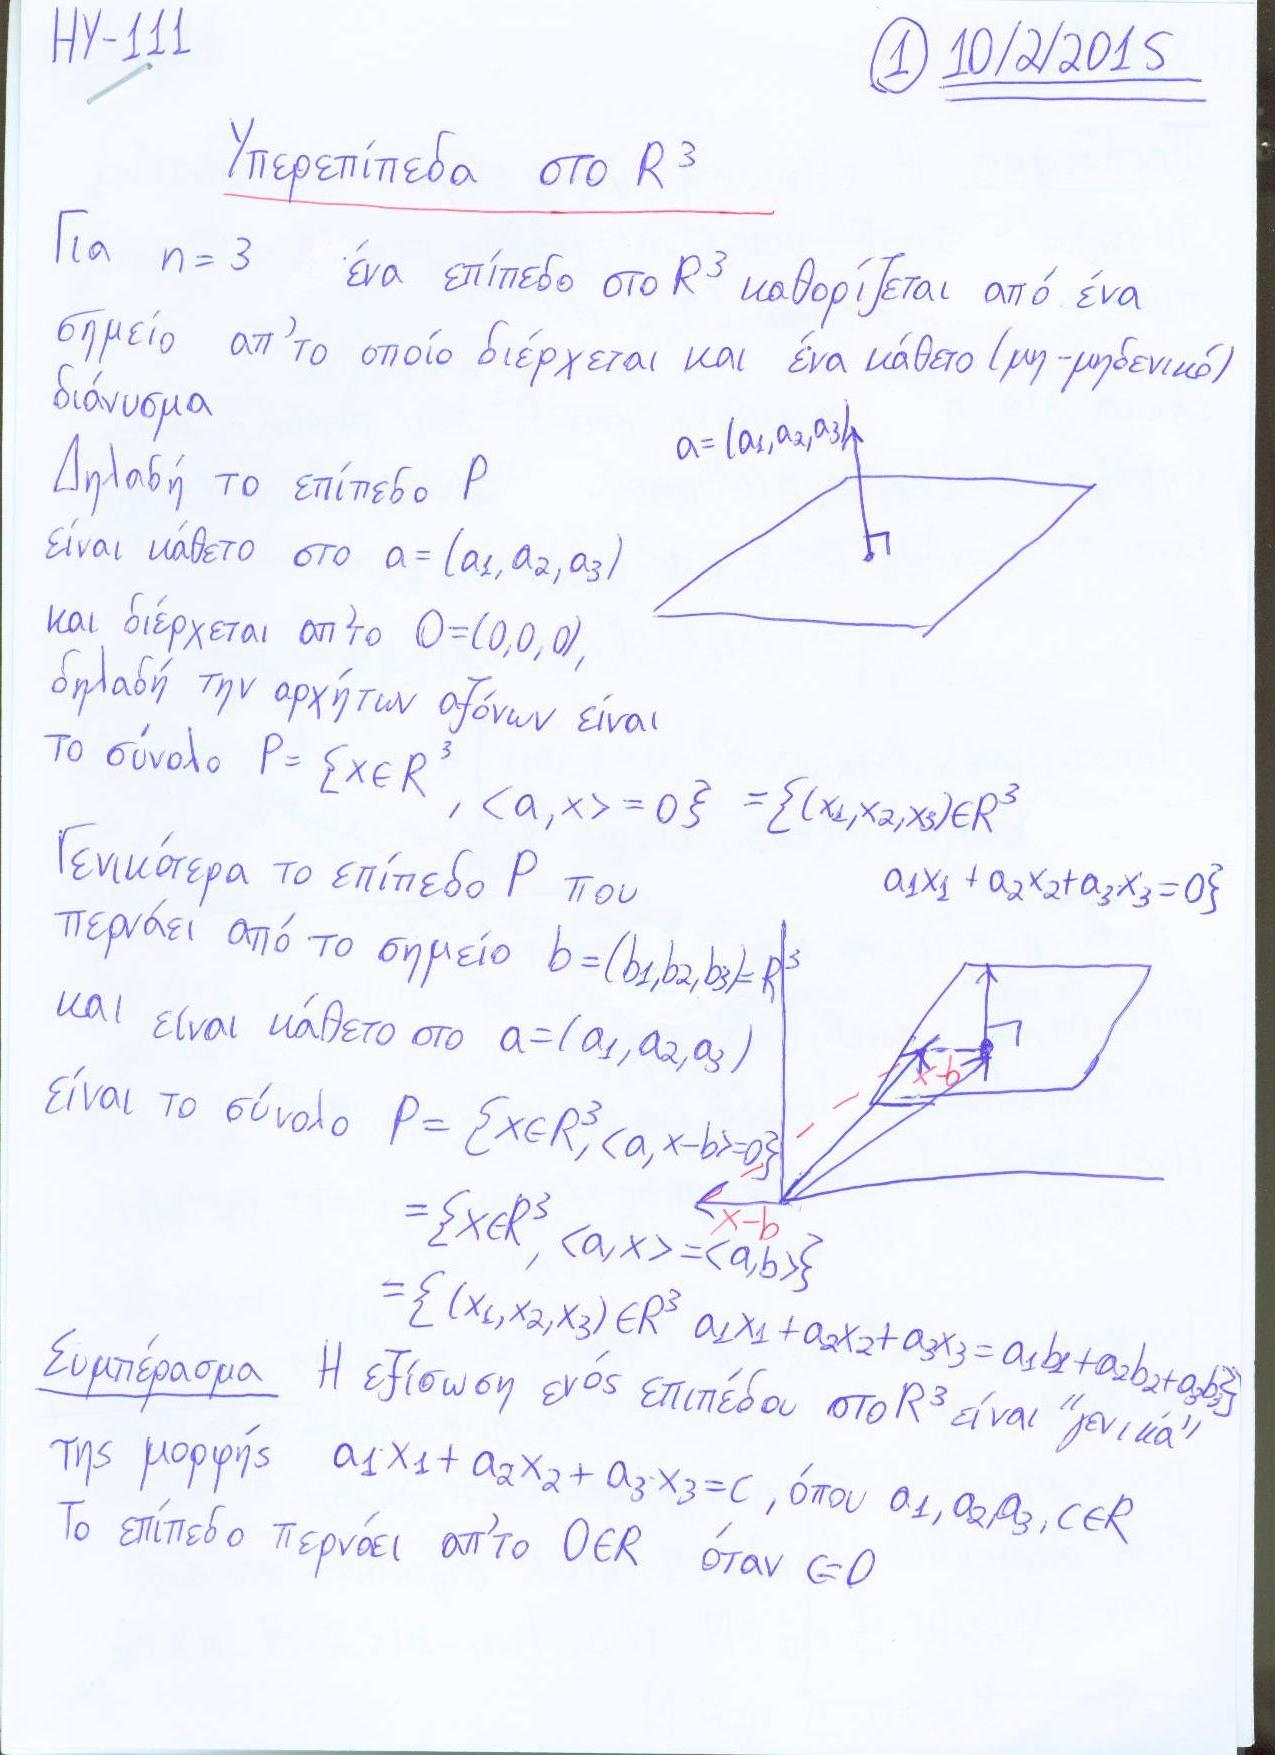 HY-111
① 10/2/2015
Υπερεπίπεδα στο R³
Για n=3 ένα επίπεδο στο R³ καθορίζεται από ένα
σημείο απ'το οποίο διέρχεται και ένα κάθετο (μη-μηδενικό)
διάνυσμα
a=(a1,a2,a3)
Δηλαδή το επίπεδο P
είναι κάθετο στο a=(a1,a2,a3)
και διέρχεται απ'το O=(0,0,0),
δηλαδή την αρχή των αξόνων είναι
το σύνολο P={x∈R³, <a,x>=0} ={(x1,x2,x3)∈R³
a1x1+a2x2+a3x3=0}
Γενικότερα το επίπεδο P που
περνάει από το σημείο b=(b1,b2,b3)∈R³
και είναι κάθετο στο a=(a1,a2,a3)
x-b
είναι το σύνολο P={x∈R³,<a,x-b>=0}
x-b
={x∈R³, <a,x>=<a,b>}
={(x1,x2,x3)∈R³ a1x1+a2x2+a3x3=a1b1+a2b2+a3b3}
Συμπέρασμα Η εξίσωση ενός επιπέδου στο R³ είναι "γενικά"
της μορφής a1x1+a2x2+a3x3=c, όπου a1,a2,a3,c∈R
Το επίπεδο περνάει απ'το O∈R όταν c=0